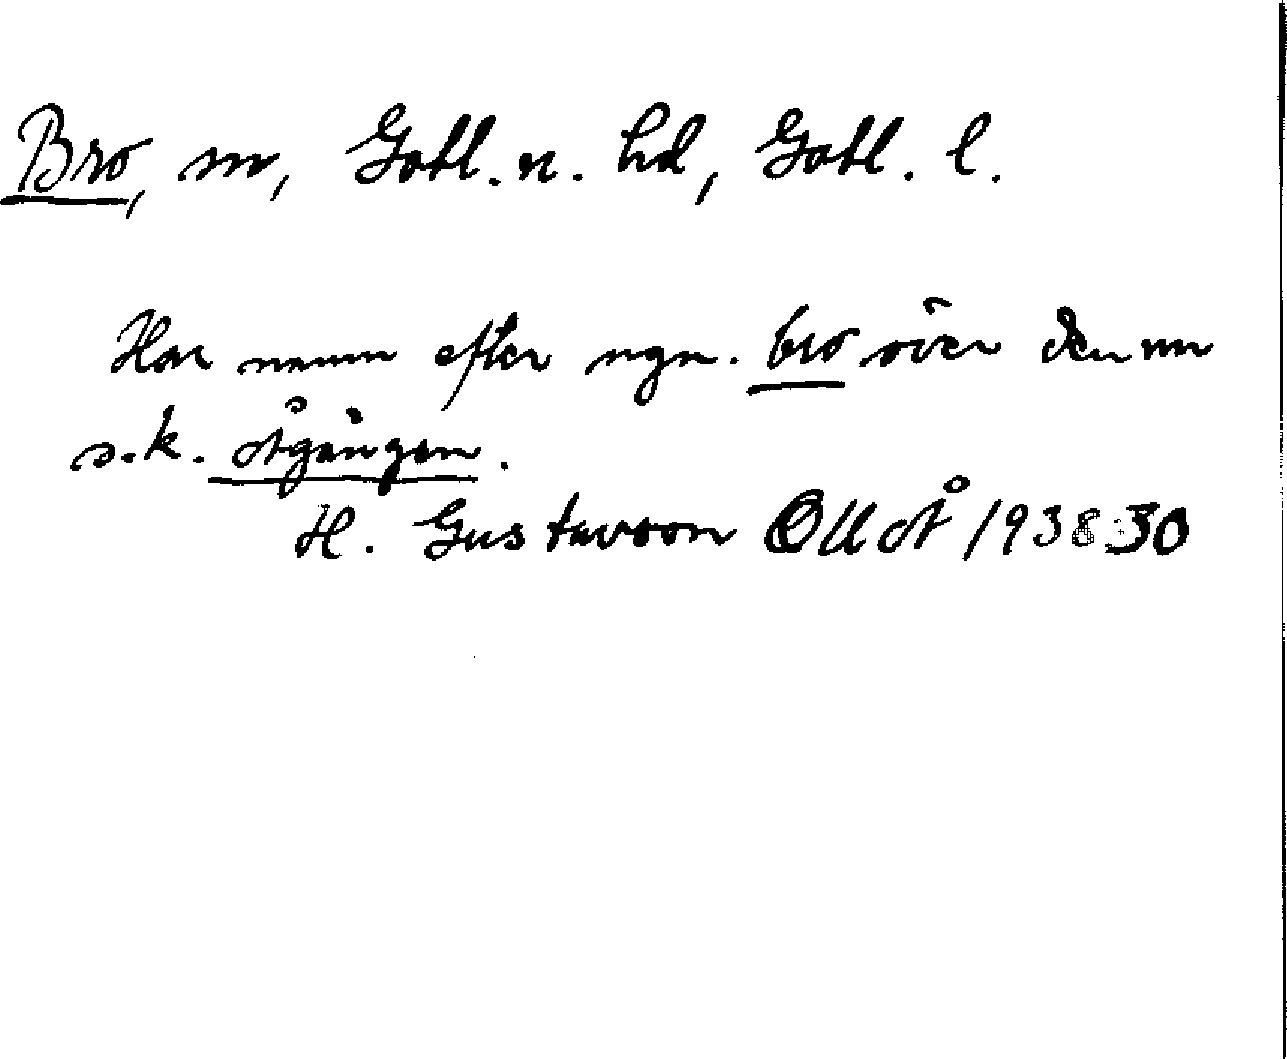 Bro, sn, Gotl. n. hd, Gotl. l.
Har namn efter ngn. bro över den nu
s.k. Ågången.
H. Gustavson OUÅ 1938:30